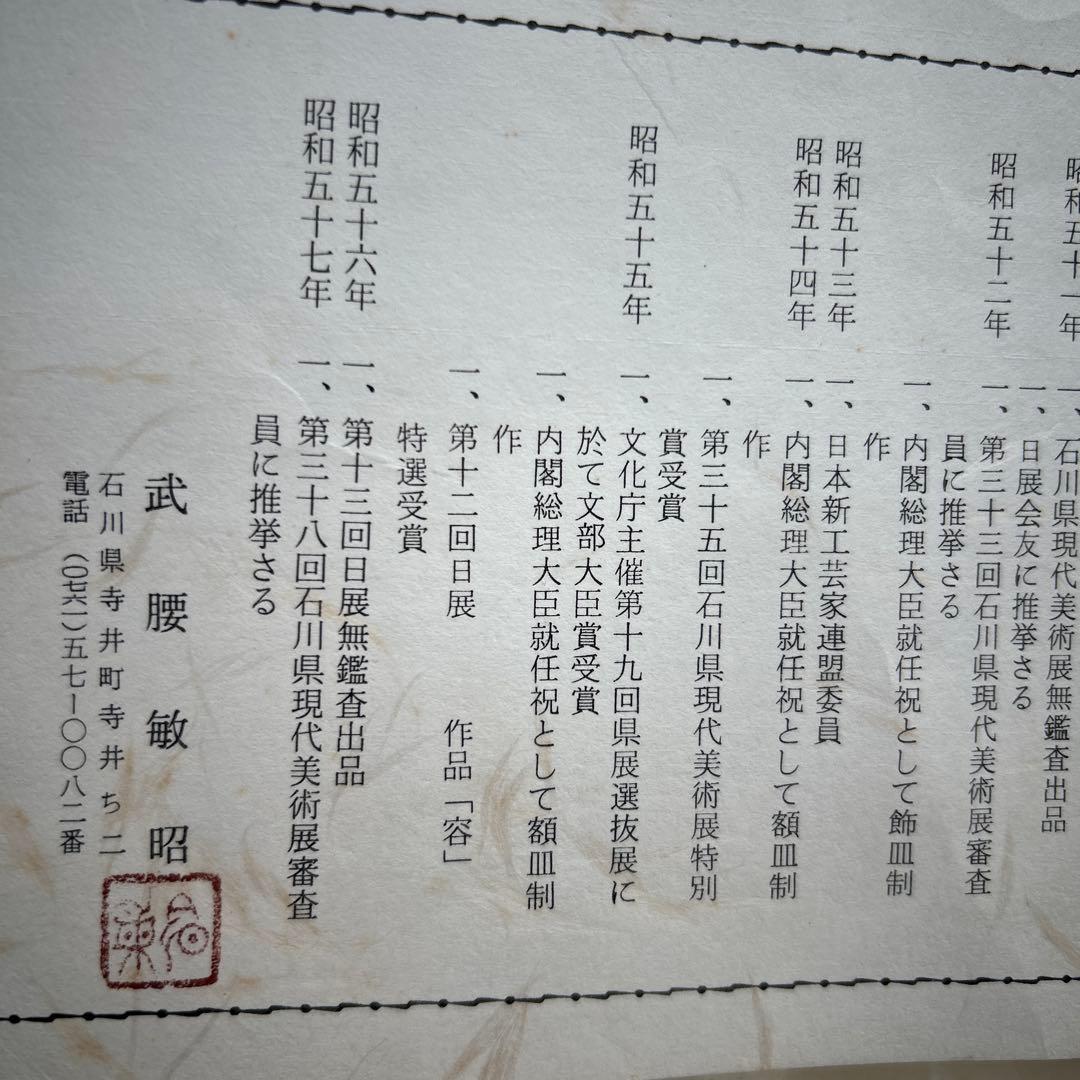 昭和五十一年 一、石川県現代美術展無鑑査出品
一、日展会友に推挙さる
昭和五十二年 一、第三十三回石川県現代美術展審査
員に推挙さる
一、内閣総理大臣就任祝として飾皿制
作
昭和五十三年 一、日本新工芸家連盟委員
昭和五十四年 一、内閣総理大臣就任祝として額皿制
作
一、第三十五回石川県現代美術展特別
賞受賞
昭和五十五年 一、文化庁主催第十九回県展選抜展に
於て文部大臣賞受賞
一、内閣総理大臣就任祝として額皿制
作
一、第十二回日展 作品「容」
特選受賞
昭和五十六年 一、第十三回日展無鑑査出品
昭和五十七年 一、第三十八回石川県現代美術展審査
員に推挙さる
武腰敏昭
石川県寺井町寺井ち二
電話（〇七六一）五七ー〇〇八二番